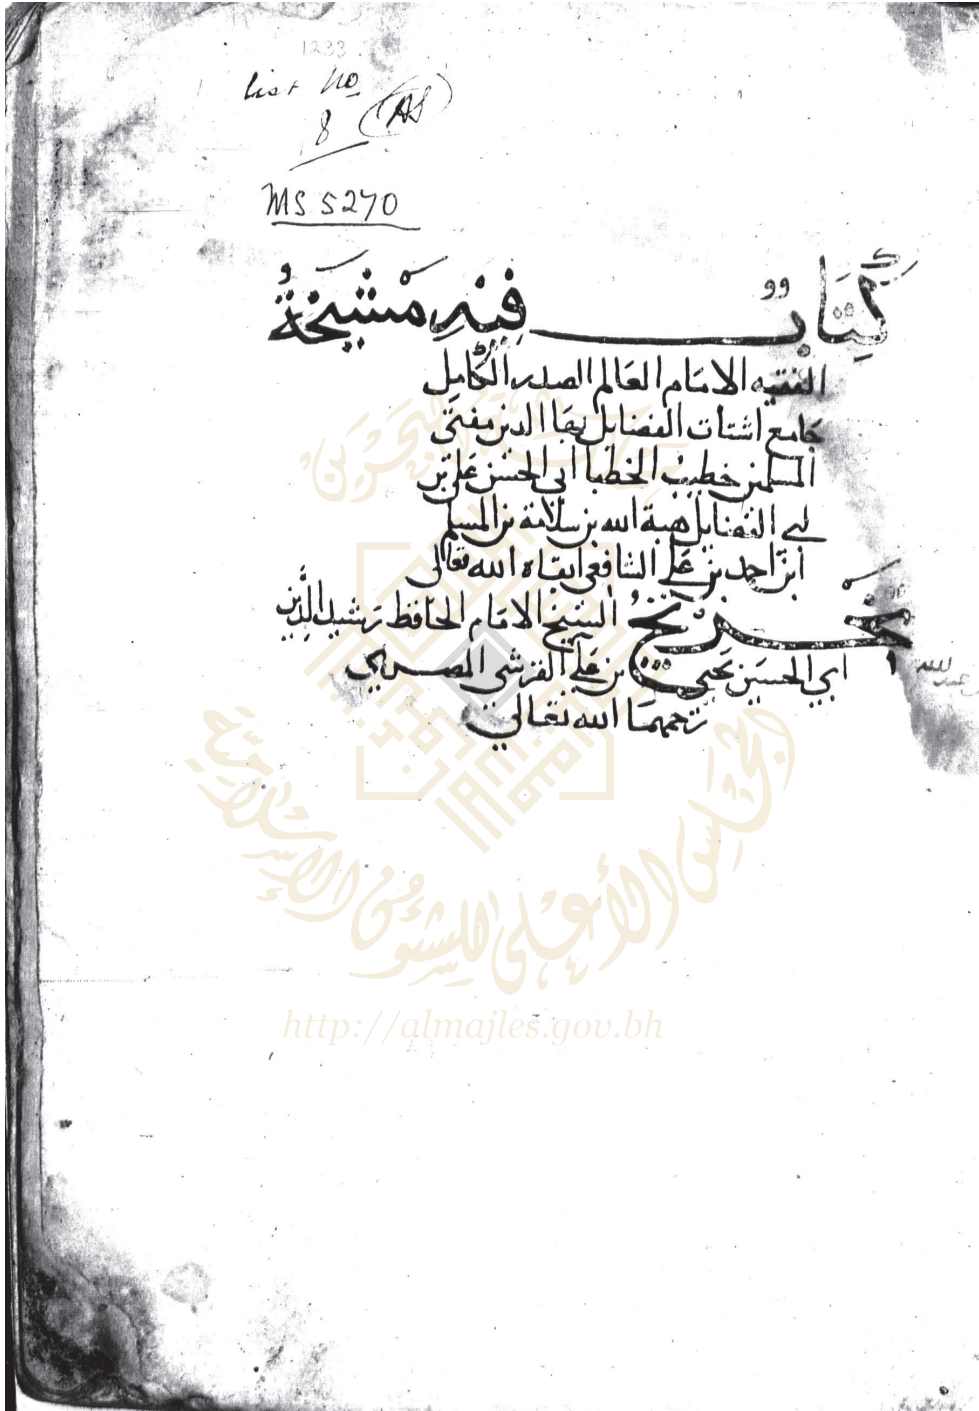 1233
List No
8 (AS)
MS 5270
كِتَابٌ فِيْهِ مَشْيَخَةُ
الفقيه الامَام العَالم الصدر الكَامِل
جَامع اشتات الفضايل بهَا الدين مفتى
المسلمين خطيب الخطبا ابى الحسن على بن
ابى الفضايل هبة الله بن سلامة بن المسلم
ابن احمد بن على الشافعى ابقاه الله تعَالى
تخريج الشيخ الامَام الحَافظ رَشيد الدِّين
ابي الحسَين يحيى بن على القرشى المصرى
رَحمهمَا الله تعَالى
المجلس الأعلى للشؤون الإسلامية
مملكة البحرين
http://almajles.gov.bh